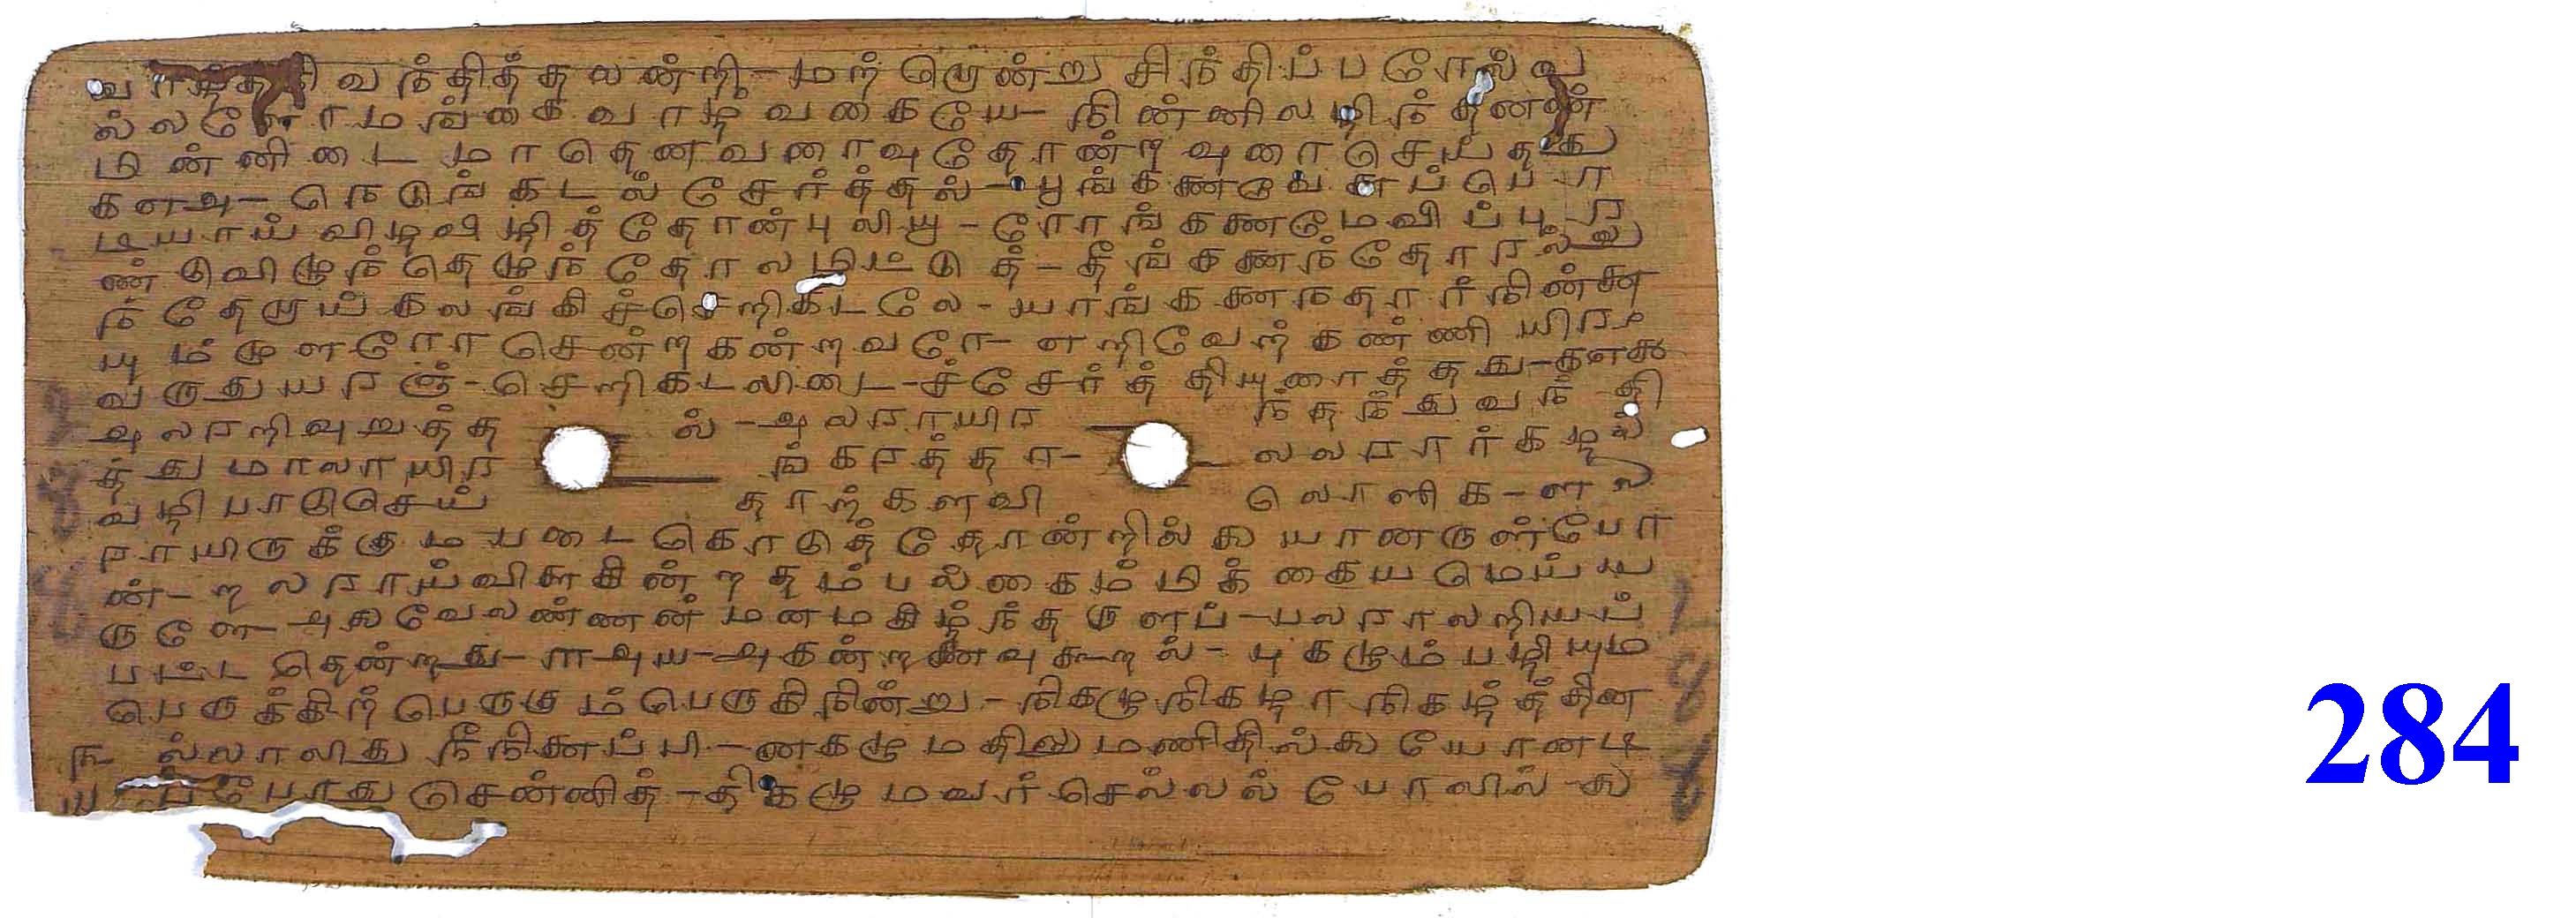 வாழ்த்தி வந்தித்தலன்றி-மற்றொன்று சிந்திப்பரோல்வ
ல்லளோமங்கை வாழ்வகையே-நின்னிலழிந்தனள்
மின்னிடை மாதெனவரைவுதோன்றவுரைசெய்தது
களஅ-நெடுங்கடல் சேர்த்தல்-பூங்கண
டியாய் விழவிழித் தோன்புலியூ-ரோங்கணடுமேவிப்புர
ண்டுவிழுந்தெழுந்தோலமிட்டுத்-தீங்கணந்தோரல்லு
ந்தேறாய் கலங்கிச்செறிகடலே-யாங்கணநதாரர்நின்ன
யும்முளரோ சென்றகன்றவரே-எறிவேற்கண்ணி யிரவ
வருதுயரஞ்-செறிகடலிடை-ச்சேர்த்தியுரைத்தது-களகூ
அலரறிவுறுத்தல்-அலராயிரந்தந்துவந்தி
த்துமாலாயிரங்கரத்தா-லலரார்கழல்
வழிபாடுசெய்தாற்களவிலொளிக-ளல
ராயிருக்கும்படைகொடுத்தோன்றில்லையானருள்போ
ன்-றலராய்விளைகின்றதம்பல்கைம்மிக்கையமெய்ய
ருளே-அலவேலண்ணன் மனமகிழ்ந்தருளப்-பலராலறியப்
பட்டதென்றது-ள௱அய-அகன்றணைவுகூறல்-புகழும்பழியும
பெருக்கிற்பெருகும்பெருகிநின்று-நிகழுநிகழாநிகழ்த்தின
ல்லாலிது நீநினைப்பி-னகழுமதிலுமணிதில்லையோனடி
போதுசென்னித்-திகழுமவர்செல்லல்போலில்-லை